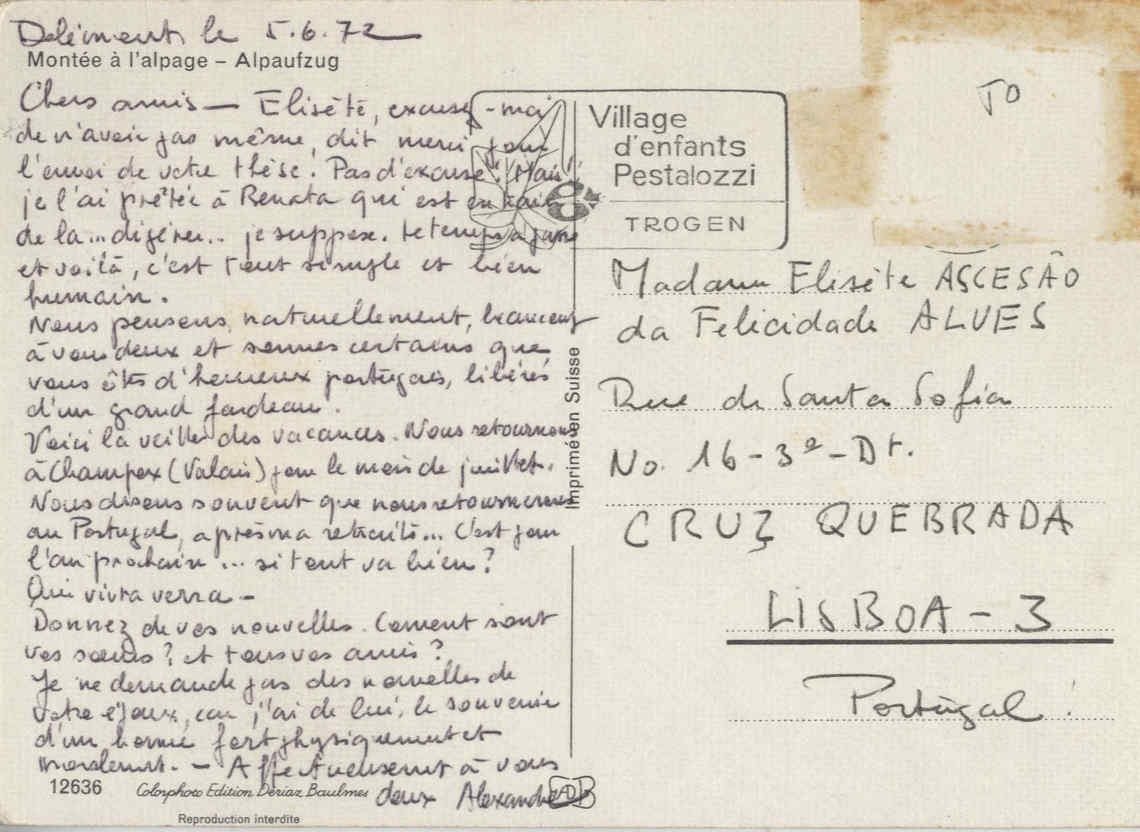 Delémont, le 5.6.72
Montée à l'alpage – Alpaufzug
Chers amis — Elisète, excusez-moi
de n'avoir pas même dit merci pour
l'envoi de votre thèse. Pas d'excuse! Mais
je l'ai prêtée à Renata qui est en train
de la... digérer.. je suppose. Le temps a passé
et voilà, c'est tout simple et bien
humain.
Nous pensons, naturellement, beaucoup
à vous deux et sommes certains que
vous êtes d'heureux portugais, libérés
d'un grand fardeau.
Voici la veille des vacances. Nous retournons
à Champex (Valais) pour le mois de juillet.
Nous disons souvent que nous retournerons
au Portugal, après ma retraite... C'est pour
l'an prochain... si tout va bien?
Qui vivra verra —
Donnez de vos nouvelles. Coment sont
vos soeurs? et tous vos amis?
Je ne demande pas des nouvelles de
votre époux, car j'ai de lui, le souvenir
d'un homme fort physiquement et
moralement. — Affectueusement à vous
deux Alexandre
12636
Colorphoto Edition Dériaz Baulmes
Reproduction interdite
Imprimé en Suisse
Village
d'enfants
Pestalozzi
TROGEN
TO
Madame Elisète ASCESÃO
da Felicidade ALVES
Rue de Santa Sofia
No. 16-3º-Dt.
CRUZ QUEBRADA
LISBOA - 3
Portugal!